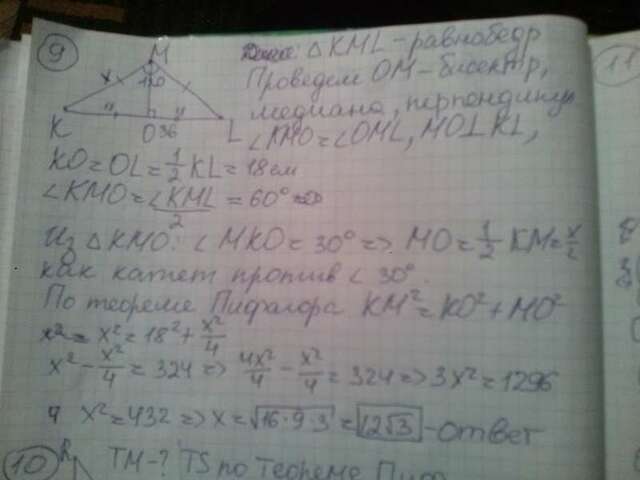 9
M
x 120
K O 36 L
ΔKML - равнобедр
Проведем OM - биссектр,
медиана, перпендикул
∠KMO = ∠OML, MO⊥KL,
KO = OL = 1/2 KL = 18 см
∠KMO = ∠KML/2 = 60° =>
Из ΔKMO: ∠MKO = 30° => MO = 1/2 KM = x/2
как катет против ∠30°.
По теореме Пифагора KM² = KO² + MO²
x² = 18² + x²/4
x² - x²/4 = 324 => 4x²/4 - x²/4 = 324 => 3x² = 1296
x² = 432 => x = √16·9·3 = 12√3 - ответ
10 TM-? TS по Теореме Пиф
11